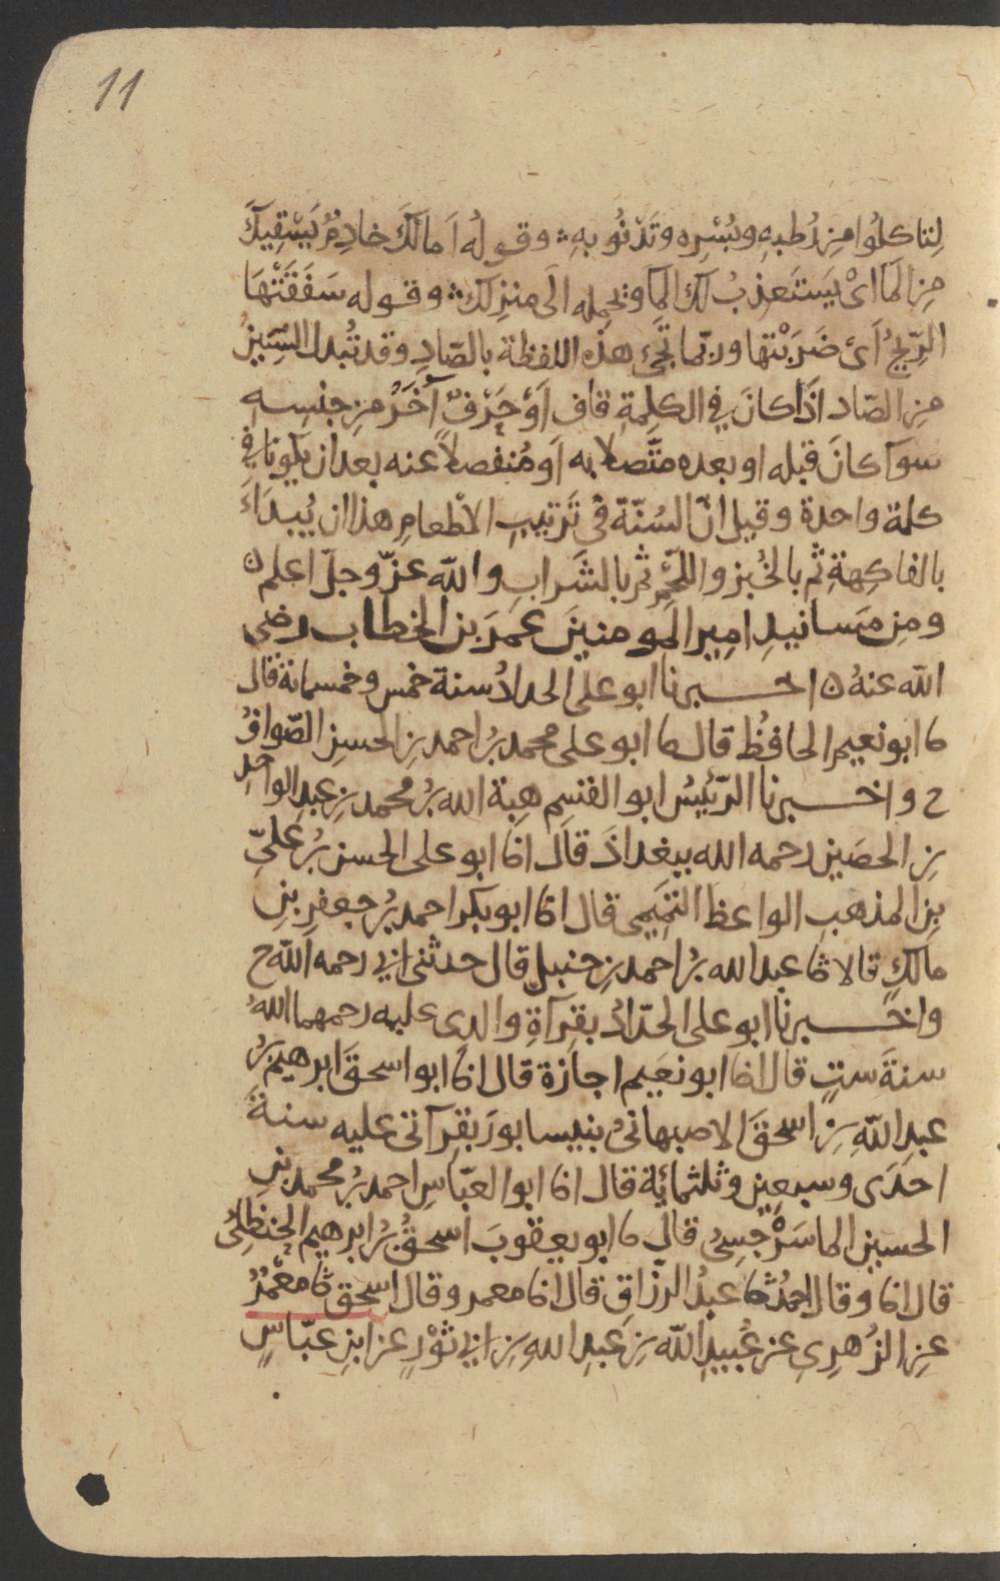 11
لتاكلوا من رُطبهِ وبُسْرِه وتَدْنُو بهِ وقوله اَما لَكَ خادِمٌ يَسْتقِيكَ
من الما اىْ يَستَعذبُ لك الما ويحمله الَى منزلك وقوله سَفَقَتْهَا
الرّيحُ اَىْ ضَرَبْتها وربّما تَجَئ هذه اللفظة بالصّادِ وقد تُبدل السّينُ
من الصّاد اذَا كانَ في الكلِمةِ قاف اَوْ حَرْفٌ آخَرُ من جنسِهِ
سَوآ كانَ قبله او بعده متَّصلا به اَو مُنفصلاً عنه بعد ان يكونا في
كلمة واحدة وقيل انّ السُنّة فى تَرتيبِ الاطعامِ هذا ان يُبدَاَ
بالفاكهةِ ثم بالخُبز واللّحْمِ ثم بالشَرابِ والله عزّ وجلّ اعلم ن
ومِن مَسانيدِ امِير المومنينَ عمَرَ بن الخطاب رضى
الله عنهُ ن اخبرنا ابو على الحدادُ سنة خمس وخمسمائة قال
ثا ابو نعيم الحافظُ قال ثا ابو على محمد بنُ احمد بنِ الحسنِ الصّوافُ
ح واخبرنا الرّئيسُ ابو القسِم هِبة الله بنُ محمد بنِ عبدِ الواحِد
بنِ الحصَين رحمه الله ببغداذَ قالَ انا ابو على الحسن بنُ علىّ
بنِ المذهب الواعظ التمِيمى قال انا ابو بكر احمد بنُ جعفرِ بنِ
مالكٍ قالا ثا عبد الله بنُ احمد بنِ حنبلٍ قال حدثنى ابى رحمه الله ح
واخبرنا ابو على الحدّادُ بقِرآةِ والدى عليه رحمهما اللهُ
سنةَ ستٍ قال انا ابو نعَيم اجازة قال انا ابو اسحقَ ابرهيم بنُ
عبدِ اللهِ بنِ اسحقَ الاصبهانىُ بنيسابورَ بقِرآتى عليه سنةَ
احدَى وسبعين وثلثمائة قال انا ابو العبّاسِ احمد بنُ محمد بنِ
الحسين الماسَرْجِسِىُ قال ثا ابو يعقوبَ اسحقُ بنُ ابرهيم الحنظلِىُ
قال انا وقال احمدُ ثا عبدُ الرزّاقِ قال انا معمر وقال اسحق ثا معْمَرٌ
عن الزُهرِىِ عن عُبيدِ اللهِ بنِ عبدِ اللهِ بنِ ابى ثَوْرٍ عن ابنِ عبّاسٍ